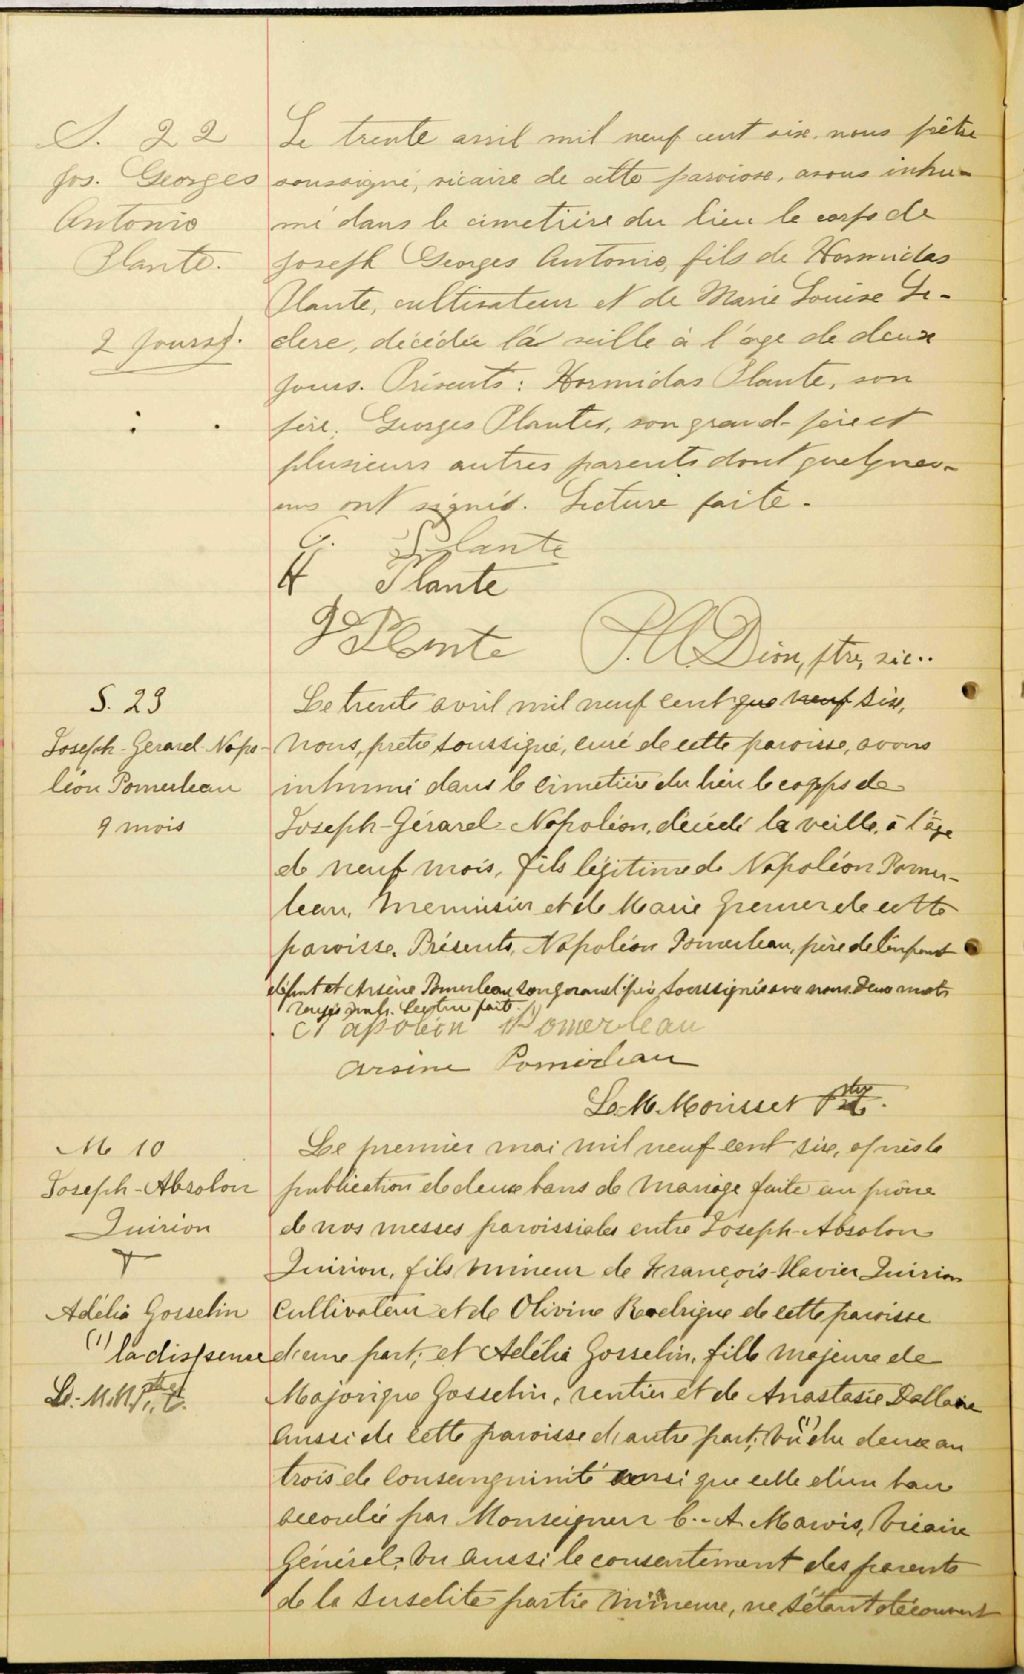 S. 22
Jos. Georges
Antonio
Plante.
2 jours.
Le trente avril mil neuf cent six, nous prêtre
soussigné, vicaire de cette paroisse, avons inhu-
mé dans le cimetière du lieu le corps de
Joseph Georges Antonio, fils de Hormidas
Plante, cultivateur et de Marie Louise Le-
clerc, décédée la veille à l'âge de deux
jours. Présents: Hormidas Plante, son
père, Georges Plante, son grand-père et
plusieurs autres parents dont quelques-
uns ont signés. Lecture faite.
G. Plante
H Plante
J Plante
P. A. Dion, ptre, vic..
S. 23
Joseph-Gerard-Napo-
léon Pomerleau
9 mois
Le trente avril mil neuf cent que neuf six,
nous, prêtre soussigné, curé de cette paroisse, avons
inhumé dans le cimetière du lieu le corps de
Joseph-Gérard-Napoléon, décédé la veille, à l'âge
de neuf mois, fils légitime de Napoléon Pomer-
leau, menuisier et de Marie Grenier de cette
paroisse. Présents, Napoléon Pomerleau, père de l'enfant
défunt et Arsène Pomerleau son grand'père soussignés avec nous. Deux mots
rayés nuls. Lecture faite.
Napoléon Pomerleau
Arsène Pomerleau
L. M. Morisset Ptre
M 10
Joseph-Absolon
Quirion
+
Adélia Gosselin
(1) la dispense
L. M. M. Ptre
Le premier mai mil neuf cent six, après la
publication de deux bans de mariage faite au prône
de nos messes paroissiales entre Joseph-Absolon
Quirion, fils mineur de François-Xavier Quirion
cultivateur et de Olivine Rodrigue de cette paroisse
d'une part; et Adélia Gosselin, fille majeure de
Majorique Gosselin, rentier et de Anastasie Dallaire
aussi de cette paroisse d'autre part; Vu (1) du deux au
trois de consanguinité ainsi que celle d'un ban
accordée par Monseigneur C.-A. Marois, Vicaire
Général; Vu aussi le consentement des parents
de la susdite partie mineure, ne s'étant découvert